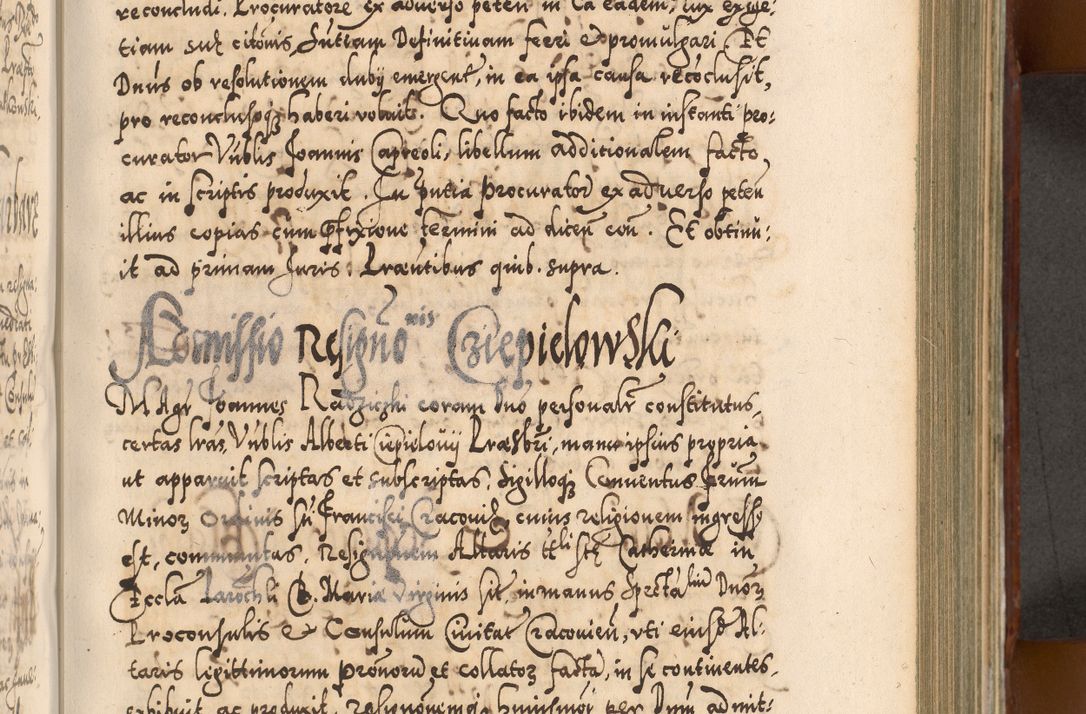 reconcludi. Procuratore ex adverso peten in Ca eadem, iux exige-
tiam suę citonis, Sntiam Definitivam ferri et promulgari. Et
Dnus ob resolutionem dubÿ emergent, in ea ipsa causa recoclusit,
pro reconclusoq₃ haberi voluit. Quo facto ibidem in instanti pro:
curator Vnblis Joannis Capreoli, libellum additionalem facto,
ac in scriptis produxit. In pntia Procurator ex adverso peten
illius copias cum termini ad dicen con. Et obtinu:
it ad primam Juris. Præntibus quib. supra.
Admissio Resigno nis Cziepielowski.
MAgr Joannes Radziczki coram Dno personalr constitutus,
certas lras, Vnblis Alberti Ciepielovij Præsbri, manu ipsius propria
ut apparuit scriptas et subscriptas, Sigilloq₃ Conventus Frum
Minor Ordinis Sti Francisci Cracovien, cuius religionem ingressy
est, communitas, Resignationem Altaris ttli Stę Catherinæ in
Eccla Parochli B. Mariæ Virginis sit, in manus Spectalium Dnor
Proconsulis et Consulum Civitat Cracovien, vti eiusd Al:
taris legittimorum Pronoru et collator facta, in se continentes,
exhibuit ac produxit, resignonemq₃ huiusmoi per Dnm admit: